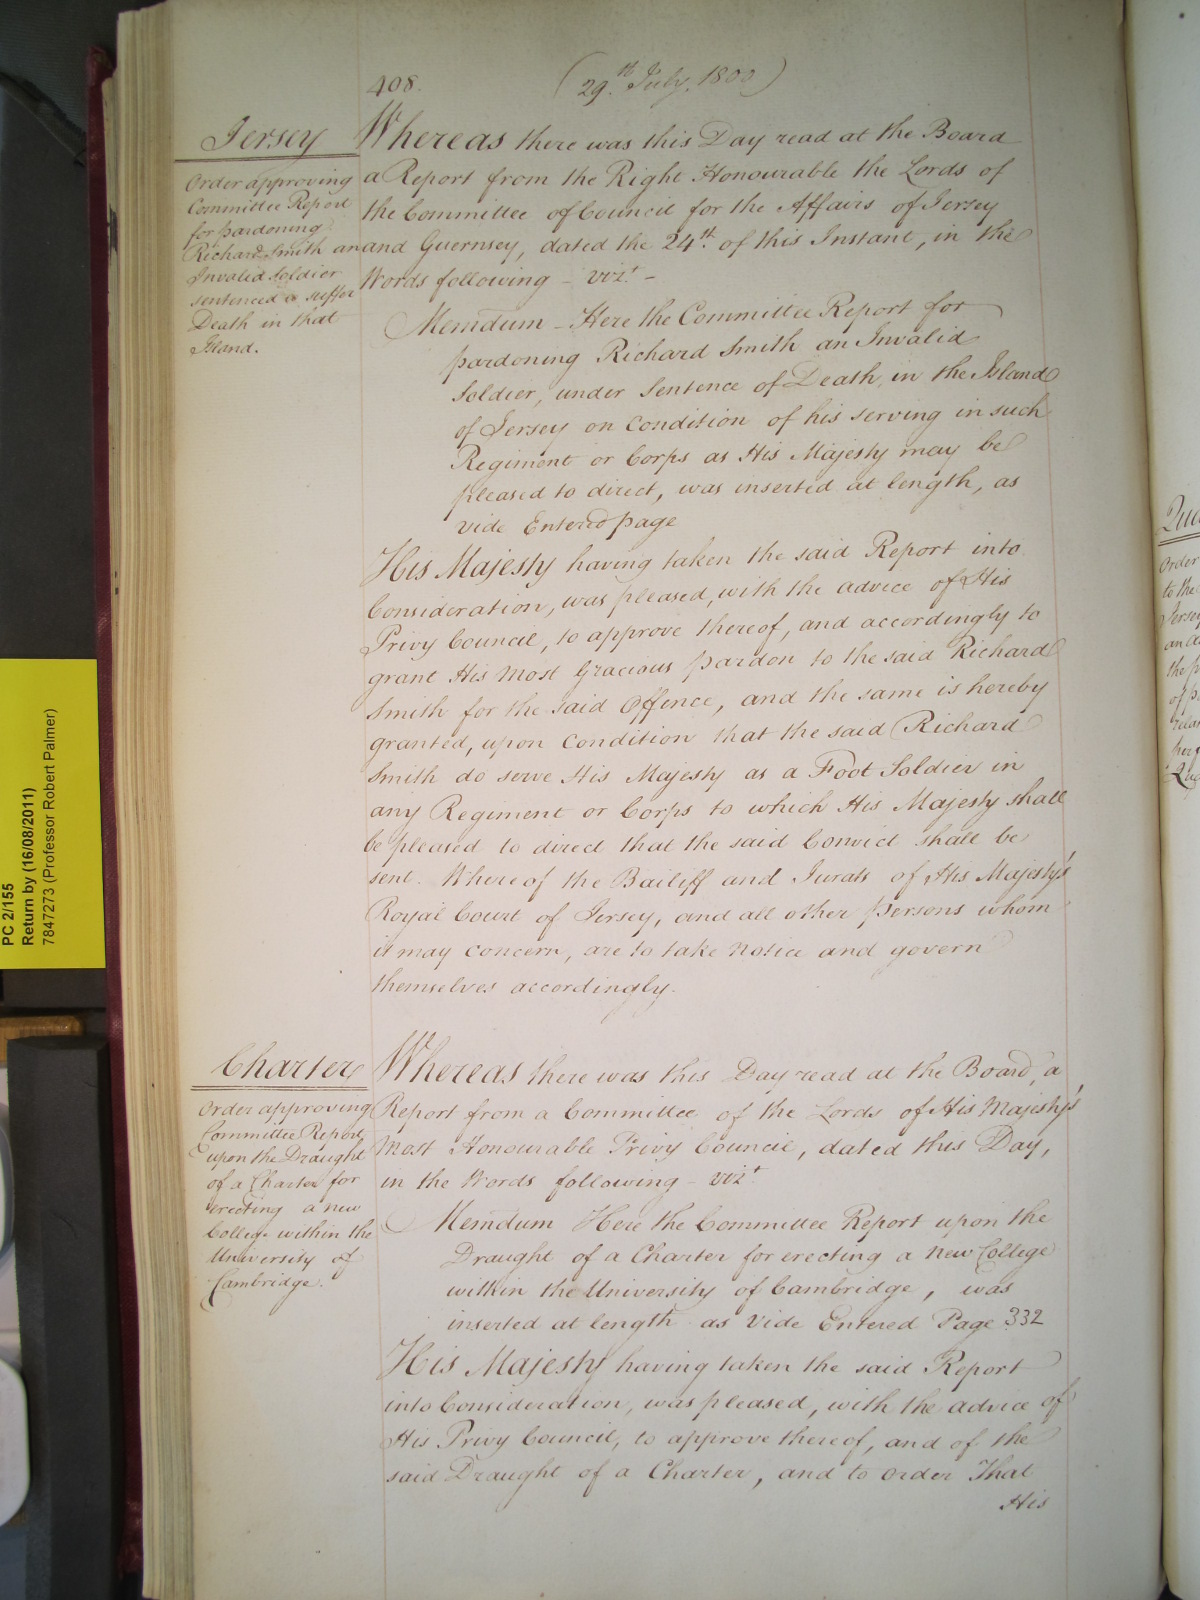 408.
(29.th July, 1800)
Jersey
Order approving
Committee Report
for pardening
Richard Smith an
Invalid Soldier
sentenced to suffer
Death in that
Island.
Whereas there was this Day read at the Board
a Report from the Right Honourable the Lords of
the Committee of Council for the Affairs of Jersey
and Guernsey, dated the 24th. of this Instant, in the
Words following - vizt. -
Memdum - Here the Committee Report for
pardoning Richard Smith an Invalid
Soldier, under Sentence of Death, in the Island
of Jersey on condition of his serving in such
Regiment or Corps as His Majesty may be
pleased to direct, was inserted at length, as
vide Entered page
His Majesty having taken the said Report into
Consideration, was pleased, with the advice of His
Privy Council, to approve thereof, and accordingly to
grant His most Gracious pardon to the said Richard
Smith for the said Offence, and the same is hereby
granted, upon condition that the said Richard
Smith do serve His Majesty as a Foot Soldier in
any Regiment or Corps to which His Majesty shall
be pleased to direct that the said Convict shall be
sent. Whereof the Bailiff and Jurats of His Majesty's
Royal Court of Jersey, and all other persons whom
it may concern, are to take notice and govern
themselves accordingly.
Charter
Order approving
Committee Report
upon the Draught
of a Charter for
erecting a new
College within the
University of
Cambridge.
Whereas there was this Day read at the Board, a
Report from a Committee of the Lords of His Majesty's
most Honourable Privy Council, dated this Day,
in the Words following - vizt.
Memdum Here the Committee Report upon the
Draught of a Charter for erecting a new College
within the University of Cambridge, was
inserted at length as vide Entered Page 332
His Majesty having taken the said Report
into Consideration, was pleased, with the advice of
His Privy Council, to approve thereof, and of the
said Draught of a Charter, and to order That
His
PC 2/155
Return by (16/08/2011)
7847273 (Professor Robert Palmer)
Order
to the